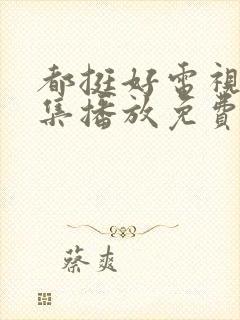 都挺好電視
集播放免費
蔡爽